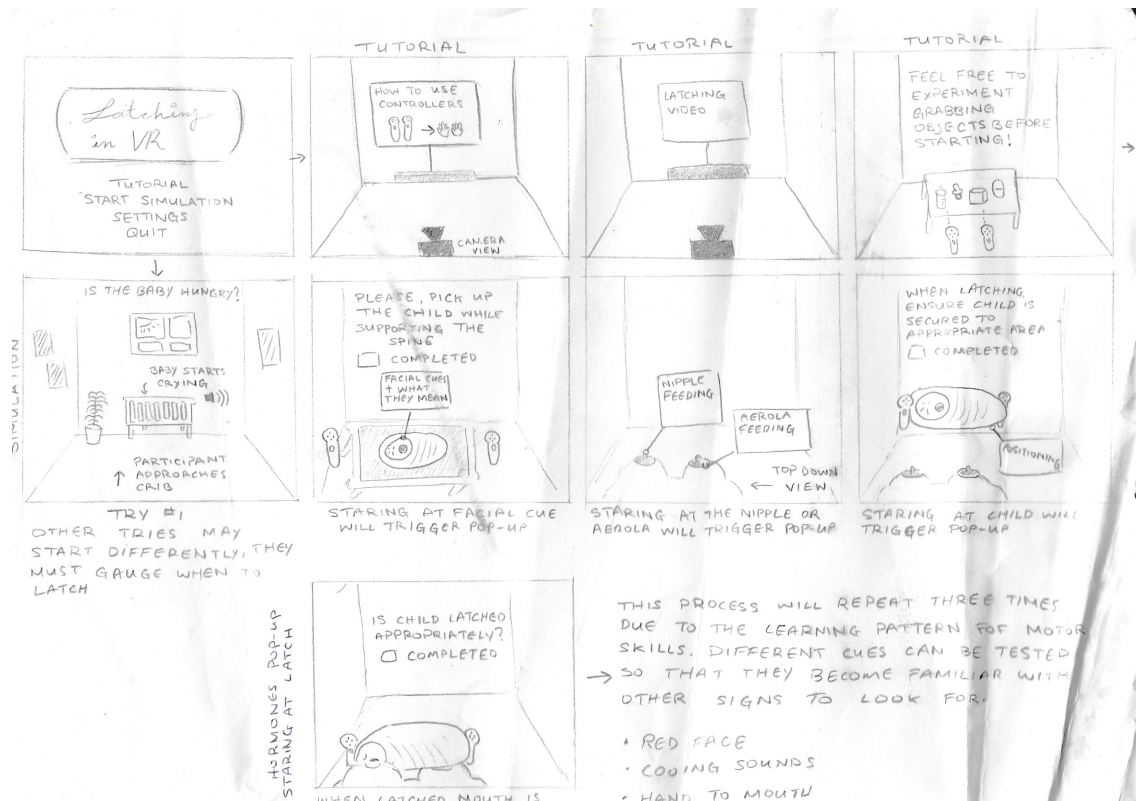 Latching
in VR
TUTORIAL
START SIMULATION
SETTINGS
QUIT
TUTORIAL
HOW TO USE
CONTROLLERS
CAMERA
VIEW
TUTORIAL
LATCHING
VIDEO
TUTORIAL
FEEL FREE TO
EXPERIMENT
GRABBING
OBJECTS BEFORE
STARTING!
SIMULATION
IS THE BABY HUNGRY?
BABY STARTS
CRYING
PARTICIPANT
APPROACHES
CRIB
TRY #1
OTHER TRIES MAY
START DIFFERENTLY, THEY
MUST GAUGE WHEN TO
LATCH
PLEASE, PICK UP
THE CHILD WHILE
SUPPORTING THE
SPINE
COMPLETED
FACIAL CUES
+ WHAT
THEY MEAN
STARING AT FACIAL CUE
WILL TRIGGER POP-UP
NIPPLE
FEEDING
AEROLA
FEEDING
TOP DOWN
VIEW
STARING AT THE NIPPLE OR
AEROLA WILL TRIGGER POP-UP
WHEN LATCHING,
ENSURE CHILD IS
SECURED TO
APPROPRIATE AREA
COMPLETED
POSITIONING
STARING AT CHILD WILL
TRIGGER POP-UP
HORMONES POP-UP
STARING AT LATCH
IS CHILD LATCHED
APPROPRIATELY?
COMPLETED
WHEN LATCHED MOUTH IS
THIS PROCESS WILL REPEAT THREE TIMES
DUE TO THE LEARNING PATTERN FOF MOTOR
SKILLS. DIFFERENT CUES CAN BE TESTED
SO THAT THEY BECOME FAMILIAR WITH
OTHER SIGNS TO LOOK FOR.
• RED FACE
• COOING SOUNDS
• HAND TO MOUTH